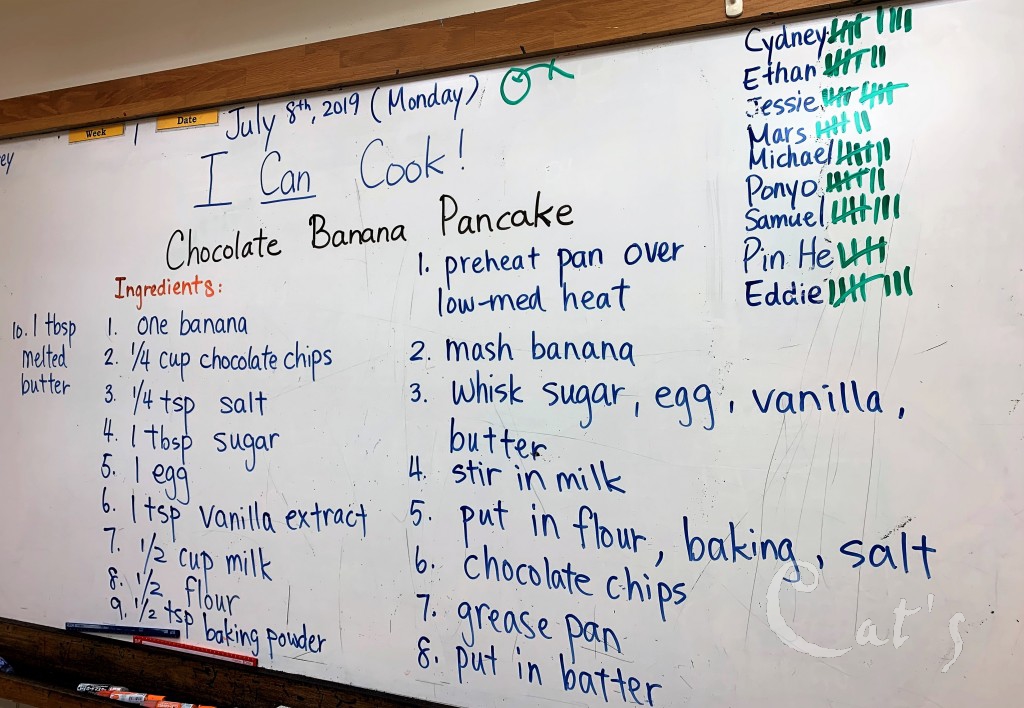 ey
Week
Date
July 8th, 2019 (Monday)
I Can Cook!
Chocolate Banana Pancake
Ingredients:
1. one banana
2. 1/4 cup chocolate chips
3. 1/4 tsp salt
4. 1 tbsp sugar
5. 1 egg
6. 1 tsp vanilla extract
7. 1/2 cup milk
8. 1/2 flour
9. 1/2 tsp baking powder
10. 1 tbsp
melted
butter
1. preheat pan over
low-med heat
2. mash banana
3. whisk sugar, egg, vanilla,
butter
4. stir in milk
5. put in flour, baking, salt
6. chocolate chips
7. grease pan
8. put in batter
Cydney
Ethan
Jessie
Mars
Michael
Ponyo
Samuel
Pin He
Eddie
Cat's